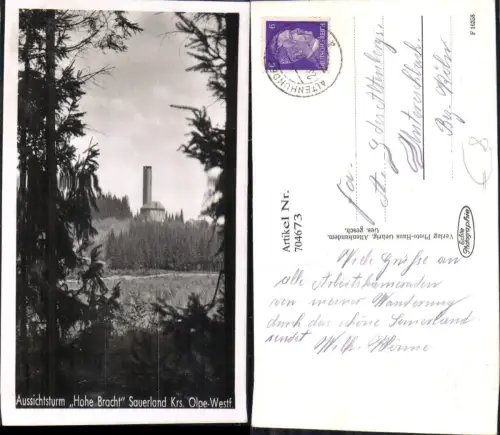 Aussichtsturm „Hohe Bracht" Sauerland Krs. Olpe-Westf
6
ALTENHUND
F 1558
Fa.
Artikel Nr.
704673
Verlag Photo-Haus Gehrig, Altenhundem.
Ges. gesch.
echte
Photographie
€ 8
Viele Grüße an
alle Arbeitskameraden
von meiner Wanderung
durch das schöne Sauerland
sendet
Wilh.